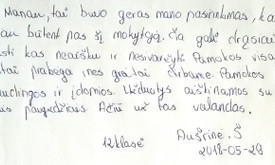 Manau, tai buvo geras mano pasirinkimas, ka
au būtent pas šį mokytoją. Čia gali drąsiai
sti kas neaišku ir nesivaržyti. Pamokos visa
tai prabėga, nes greitai dirbame. Pamokos
audingos ir įdomios. Užduotys aiškinamos su
is pavyzdžiais. Ačiū už tas valandas.
12 klasė
Aušrinė. Š
2018-05-29